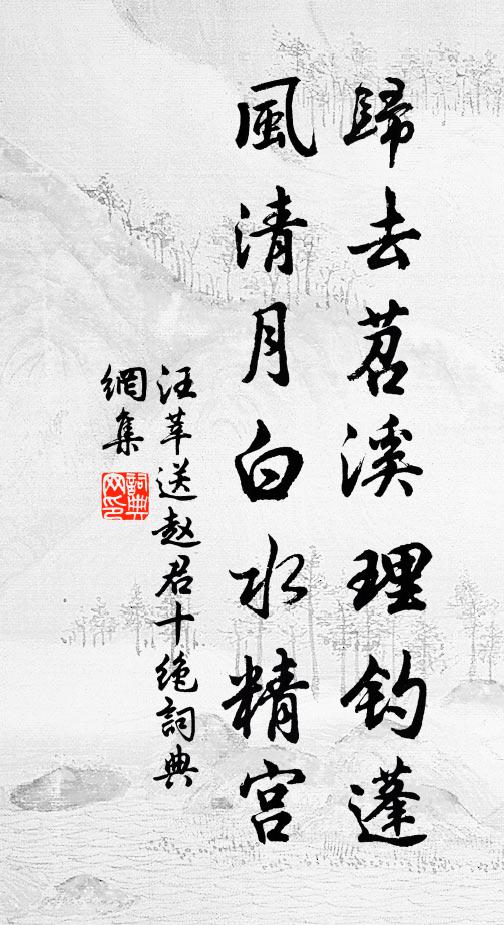 歸去苕溪理釣蓬
風清月白水精宮
汪莘送赵君十绝詞典
網集
詞典網印